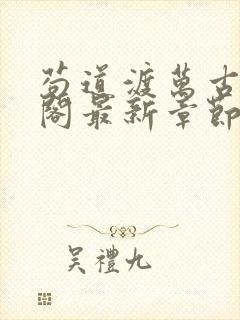 苟道渡萬古
閣最新章節
吴禮九